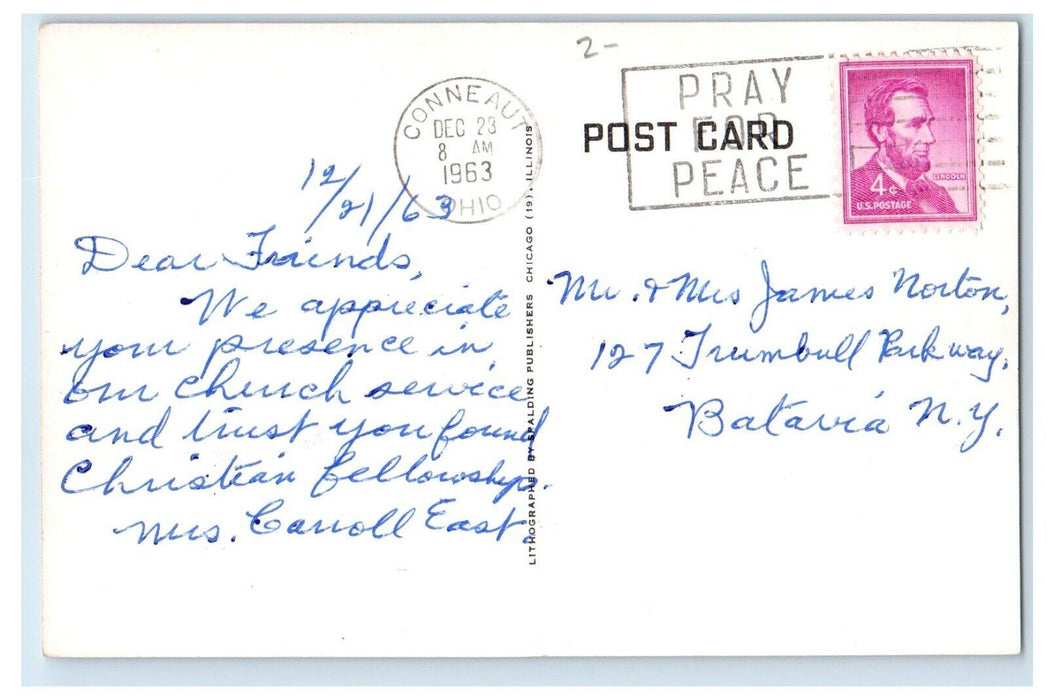 2-
CONNEAUT
DEC 23
8 AM
1963
OHIO
PRAY
FOR
PEACE
POST CARD
LINCOLN
4¢
U.S. POSTAGE
12/21/63
Dear Friends,
We appreciate
your presence in
our church service
and trust you found
Christian fellowship.
Mrs. Carroll East.
LITHOGRAPHED BY SPALDING PUBLISHERS CHICAGO (19), ILLINOIS
Mr. & Mrs James Norton,
127 Trumbull Parkway,
Batavia N.Y.